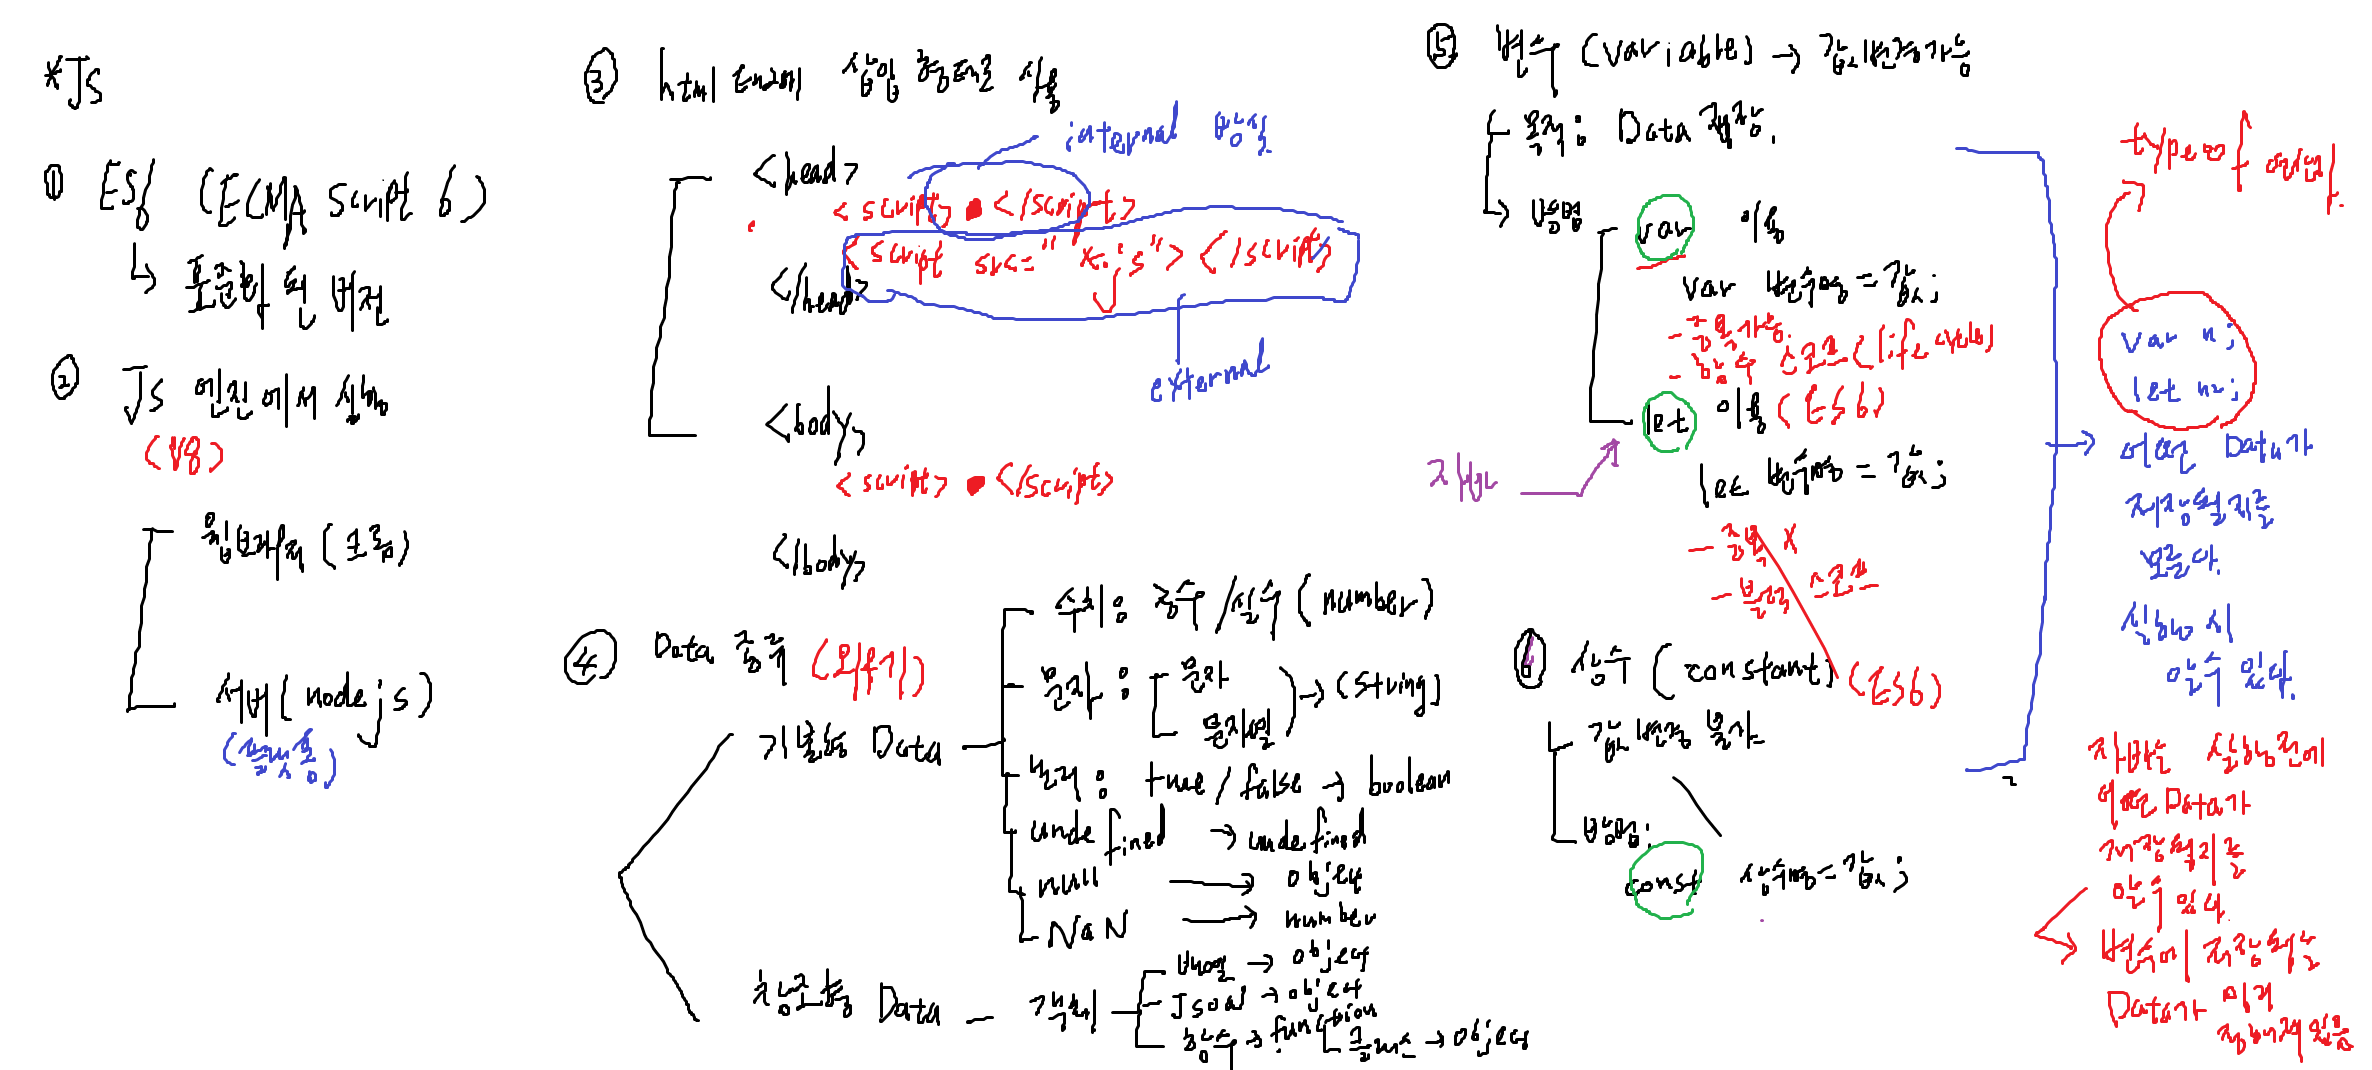 *JS
① ES6 (ECMA Script 6)
↳ 표준화 된 버전
② JS 엔진에서 실행
(V8)
웹브라우저 (크롬)
서버 (node js)
③ html 태그에 삽입 형태로 사용
internal 방식
<head>
<script> </script>
<script src="x.js"> </script>
</head>
external
<body>
<script> </script>
</body>
④ Data 종류 (외우기)
기본형 Data
수치 : 정수 / 실수 (number)
문자 : 문자
문자열 → (string)
논리 : true / false → boolean
undefined → undefined
null → object
NaN → number
참조형 Data - 객체
배열 → object
JSON → object
함수 → function
클래스 → object
⑤ 변수 (variable) → 값 변경가능
목적 : Data 저장.
방법
var 이용
var 변수명 = 값;
- 중복가능.
- 함수 스코프 (life cycle)
let 이용 (ES6)
지향
let 변수명 = 값;
- 중복 X
- 블럭 스코프
⑥ 상수 (constant) (ES6)
값 변경 불가
방법 :
const 상수명 = 값;
typeof 연산
var n;
let n2;
어떤 Data가
저장될지를
모른다.
실행 시
알수 있다.
자바는 실행전에
어떤 Data가
저장될지를
알수 있다
변수에 저장되는
Data가 미리
정해져있음